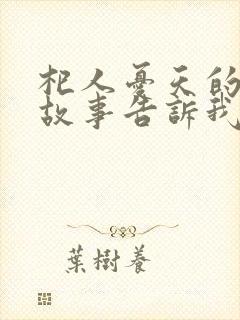 杞人憂天的
故事告訴我
葉樹養